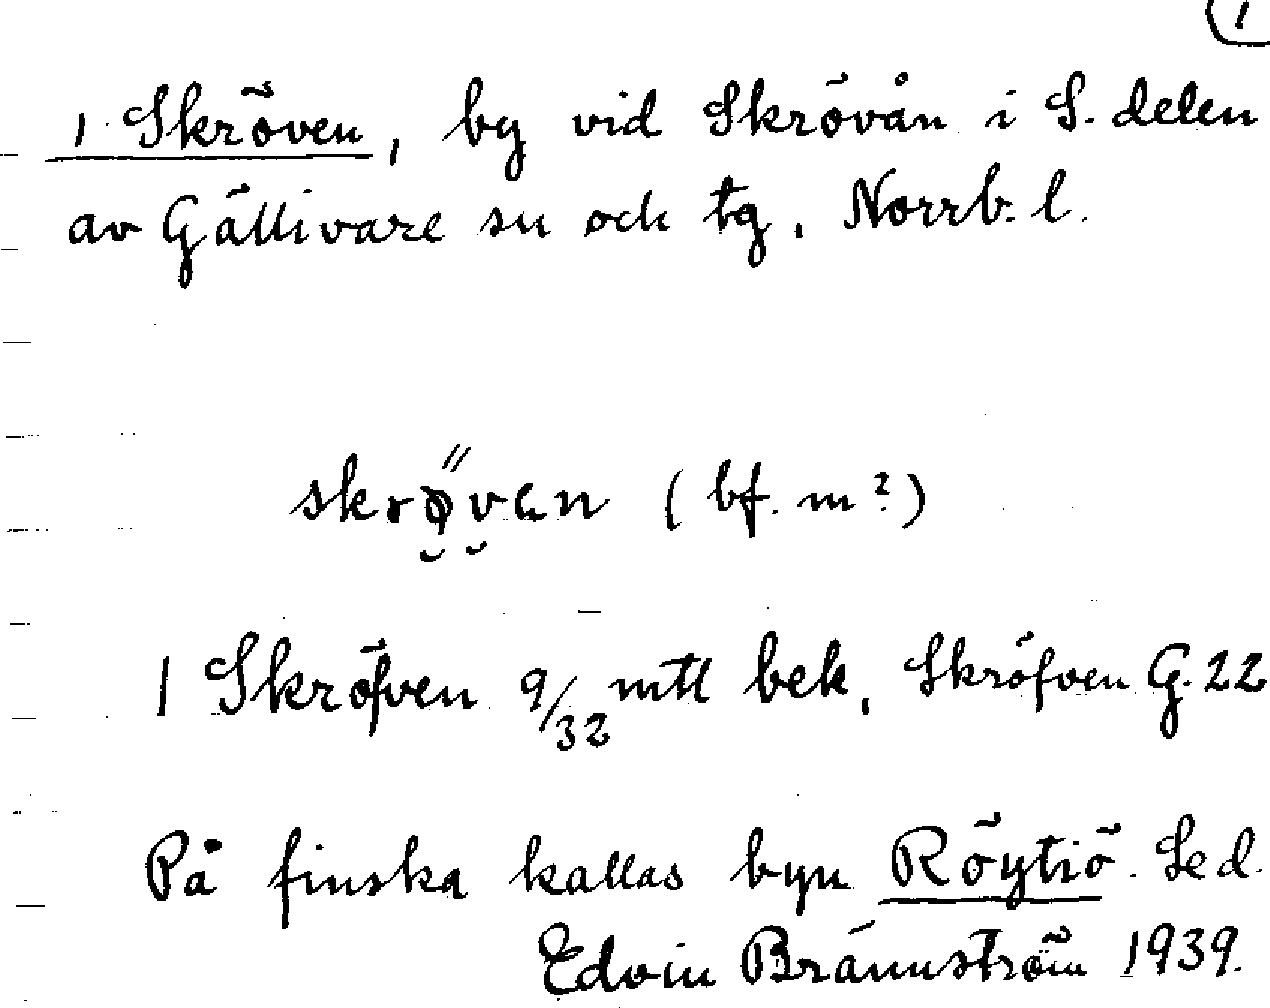 1
1 Skröven, by vid Skrövån i S. delen
av Gällivare sn och tg, Norrb. l.
skrø̋van (bf. m?)
1 Skröfven 9/32 mtl bek, Skröfven G. 22
På finska kallas byn Röytiö. Se d.
Edvin Brännström 1939.